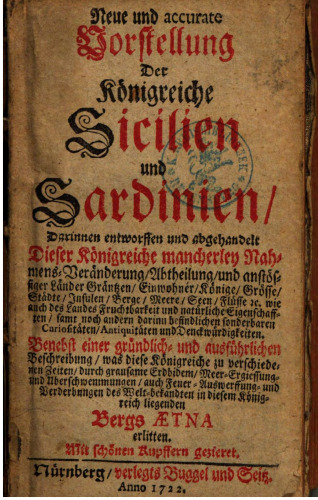 Neue und accurate
Vorstellung
Der
Königreiche
Sicilien
und
Sardinien/
Darinnen entworffen und abgehandelt
Dieser Königreiche mancherley Nah-
mens-Veränderung/Abtheilung/und anstös-
siger Länder Gräntzen/Einwohner/Könige/Grösse/
Städte/Insulen/Berge/Meere/Seen/Flüsse ꝛc. wie
auch des Landes Fruchtbarkeit und natürliche Eigenschaff-
ten/ samt noch andern darinn befindlichen sonderbaren
Curiositäten/Antiquitäten und Denckwürdigkeiten.
Benebst einer gründlich- und ausführlichen
Beschreibung/ was diese Königreiche zu verschiede-
nen Zeiten/ durch grausame Erdbidem/Meer-Ergiessung-
und Uberschwemmungen/ auch Feuer-Auswerffung- und
Verderbungen des Welt-bekandten in diesem König-
reich liegenden
Bergs ÆTNA
erlitten.
Mit schönen Kupffern gezieret.
Nürnberg/ verlegts Buggel und Seitz.
Anno 1722.